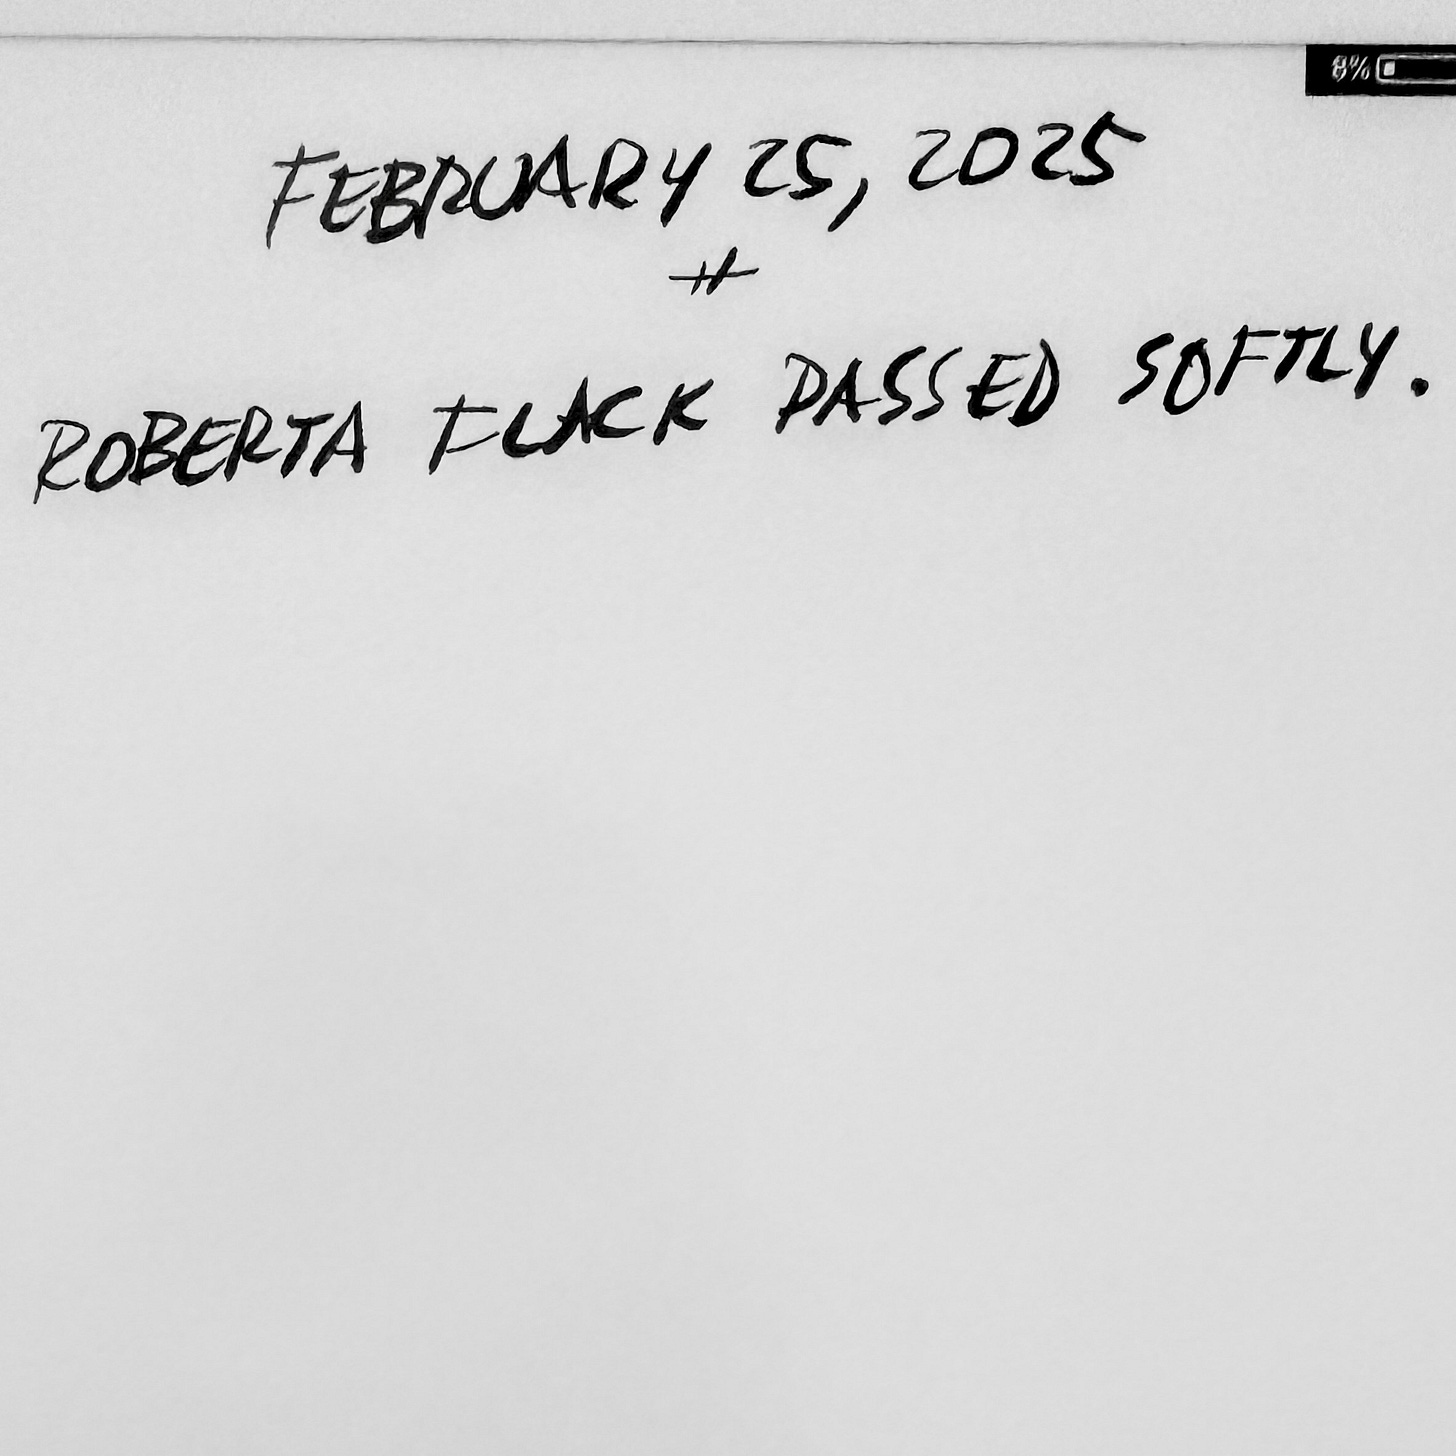 8%
FEBRUARY 25, 2025
#
ROBERTA FLACK PASSED SOFTLY.